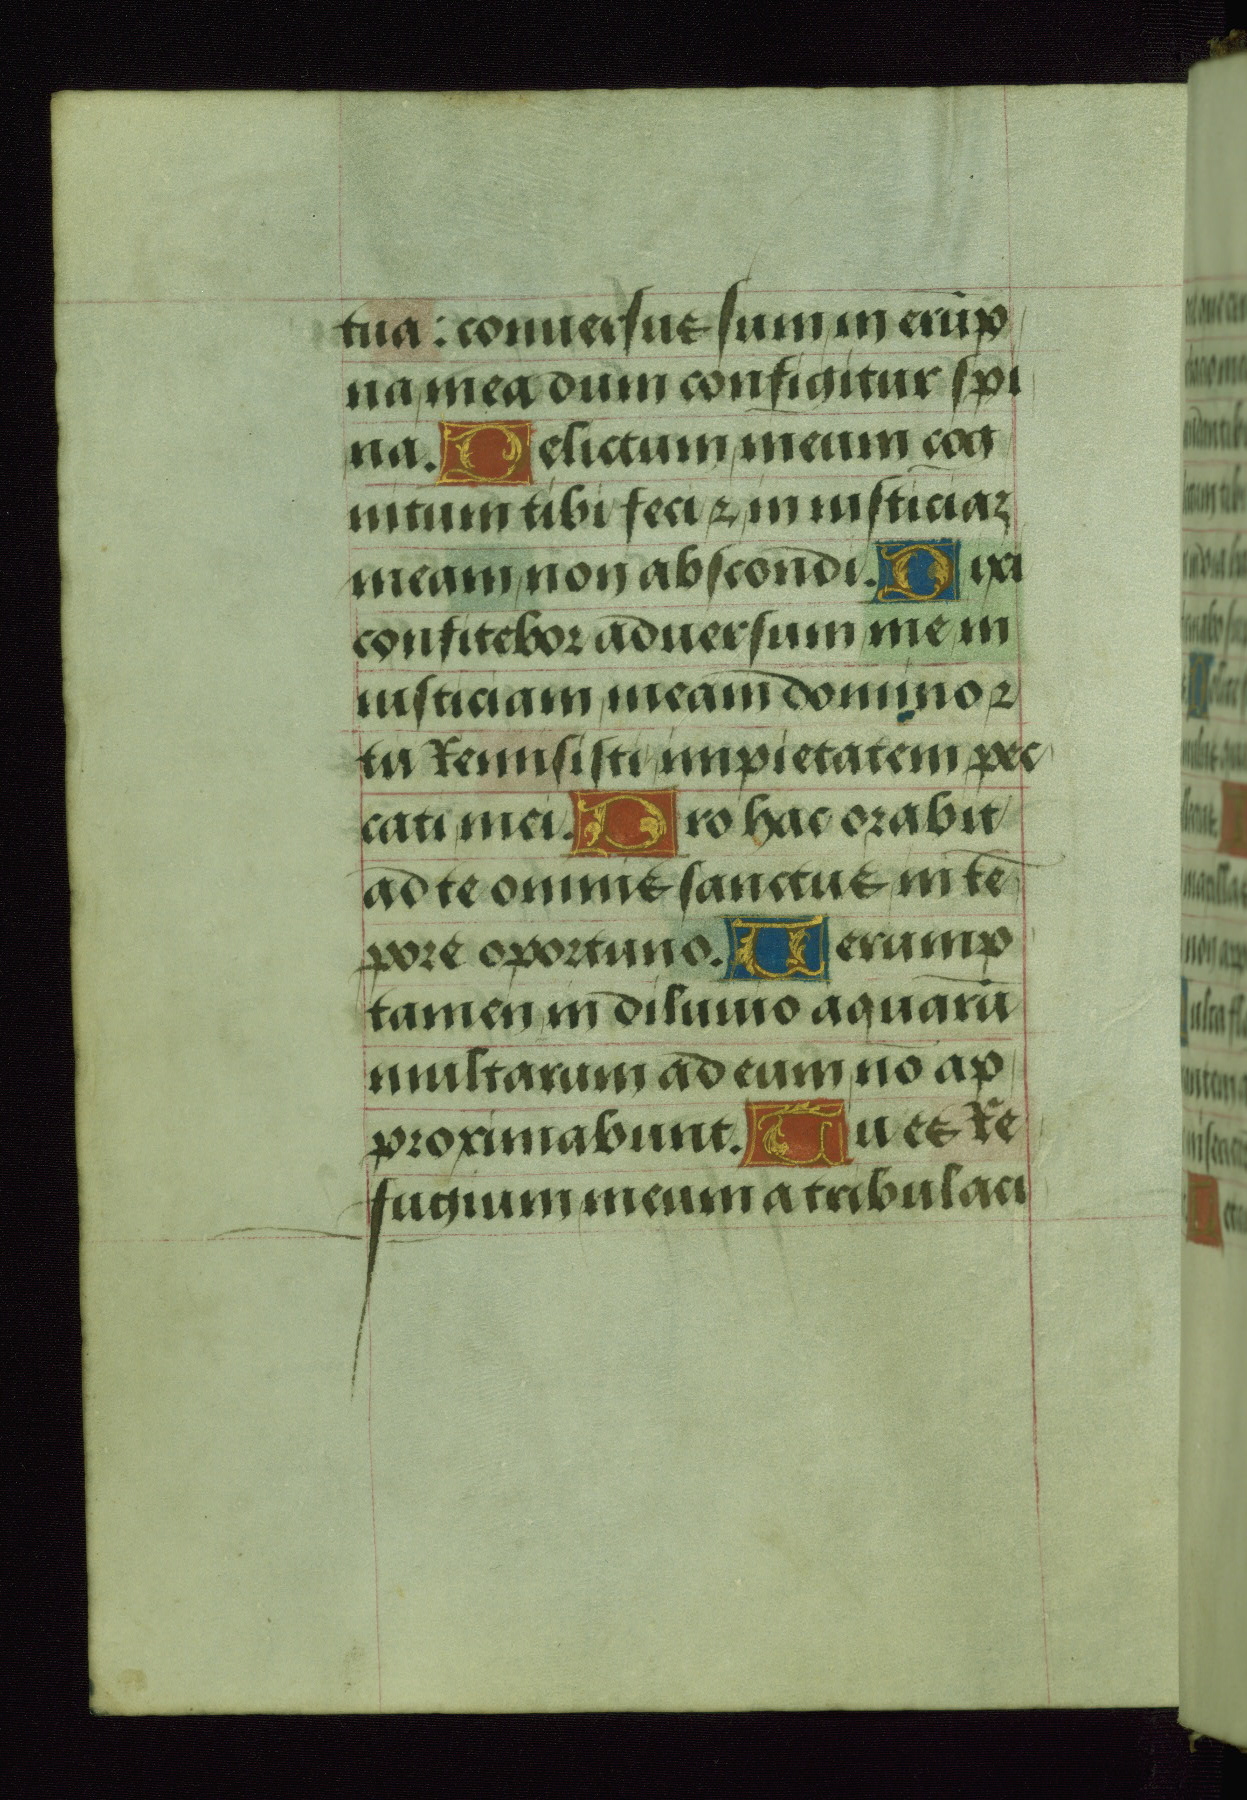 tua: conuersus sum in erūp
na mea dum configitur spi
na. Delictum meum cog
nitum tibi feci ⁊ in iusticiaz
meam non abscondi. Dixi
confitebor aduersum me in
iusticiam meam domino ⁊
tu remisisti impietatem pec
cati mei. Pro hac orabit
ad te omnis sanctus in tē
pore oportuno. Uerump
tamen in diluuio aquarū
multarum ad eum nō ap
proximabunt. Tu es re
fugium meum a tribulaci